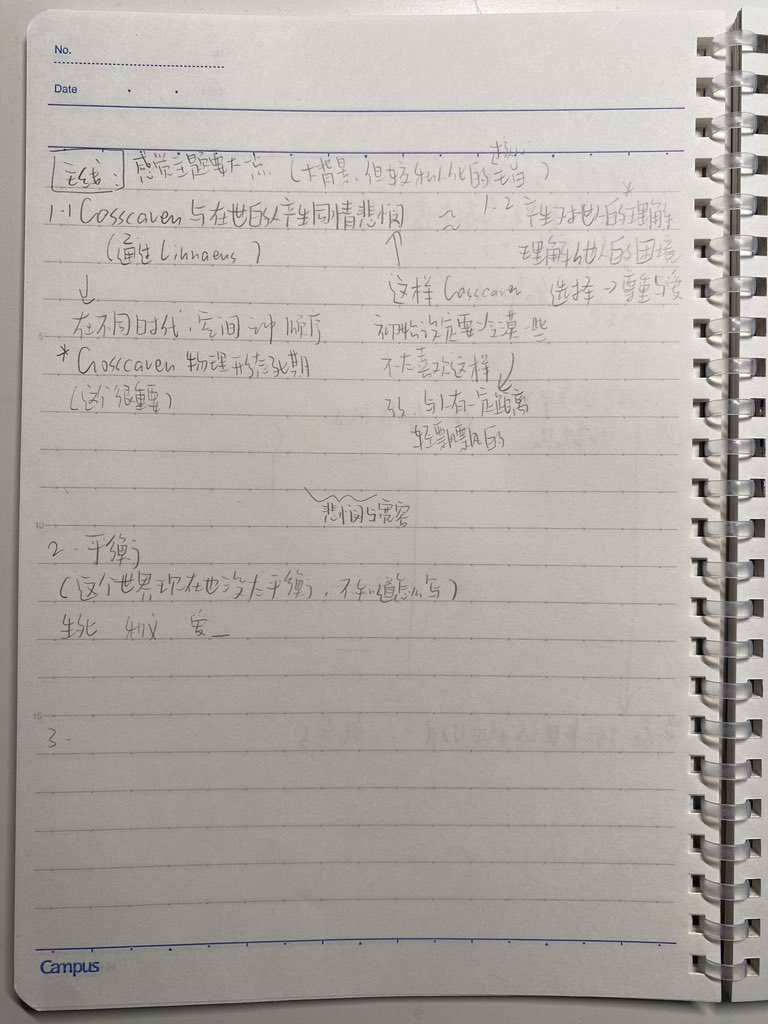 No.
Date
主线: 感觉主题要大一点 (大背景, 但较私人化的 主旨)
核心
1.1 Cosscaven 与在世的人产生同情悲悯 ≈ 1.2 产生对世人的理解
(通过 Linnaeus)
理解他人的困境
选择→尊重与爱
↓
在不同时代、空间 顺序
* Cosscaven 物理形态死期
(这个很重要)
↑
这样 Cosscaven
初始设定要冷漠一些
不太喜欢这样
↓
与人有一定距离
轻飘飘的
悲悯与宽容
5
10
2. 平衡
(这个世界现在也没太平衡, 不知道怎么写)
生死 利义 爱_
15
3.
Campus